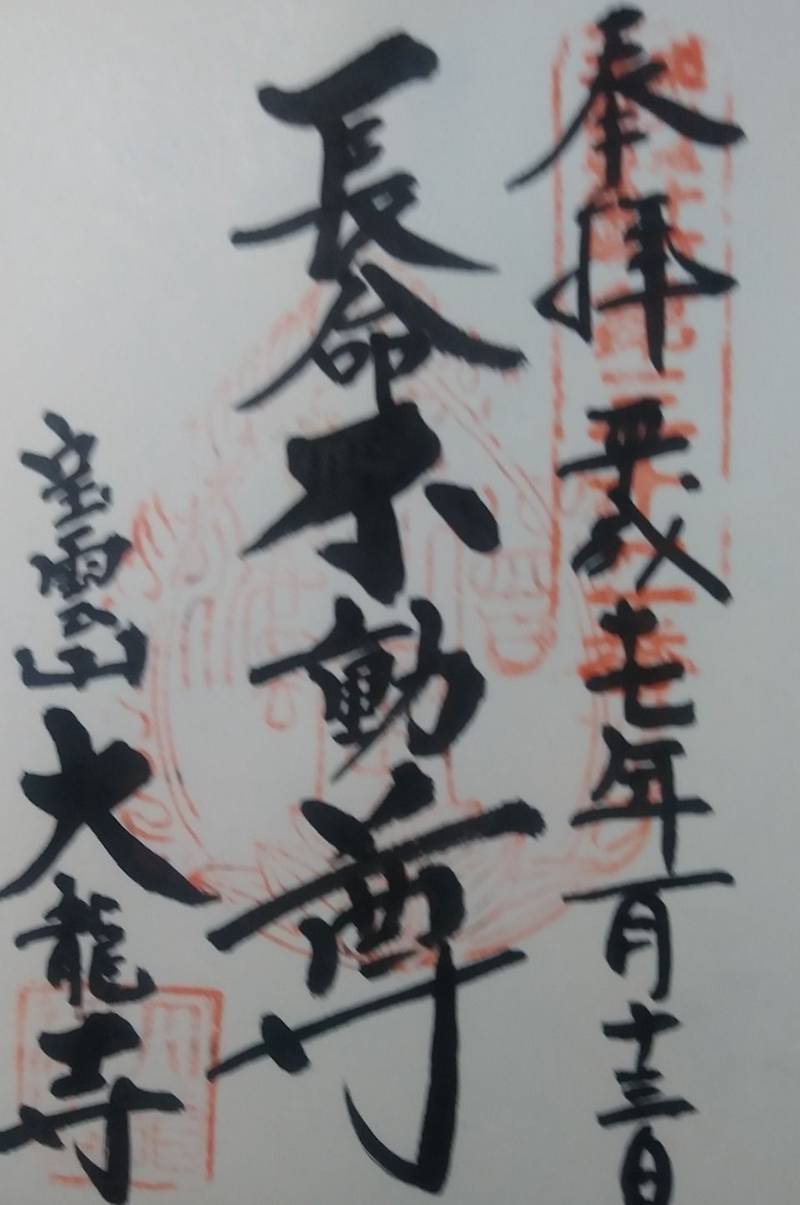 奉拝 平成廿七年一月十三日
長命不動尊
宝雲山 大龍寺